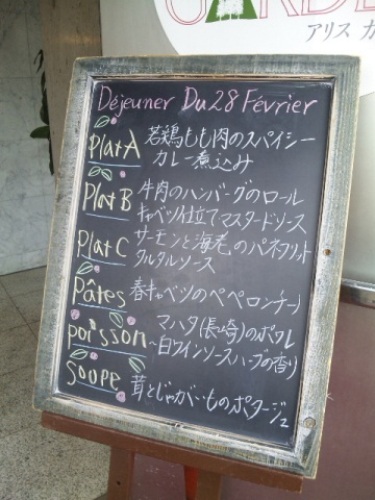 GARDE
アリス ガ
Déjeuner Du 28 Février
Plat A 若鶏もも肉のスパイシー
カレー煮込み
Plat B 牛肉のハンバーグのロール
キャベツ仕立てマスタードソース
Plat C サーモンと海老のパネフリット
タルタルソース
Pâtes 春キャベツのペペロンチーノ
poisson マハタ(長崎)のポワレ
~白ワインソースハーブの香り
Soope 茸とじゃがいものポタージュ